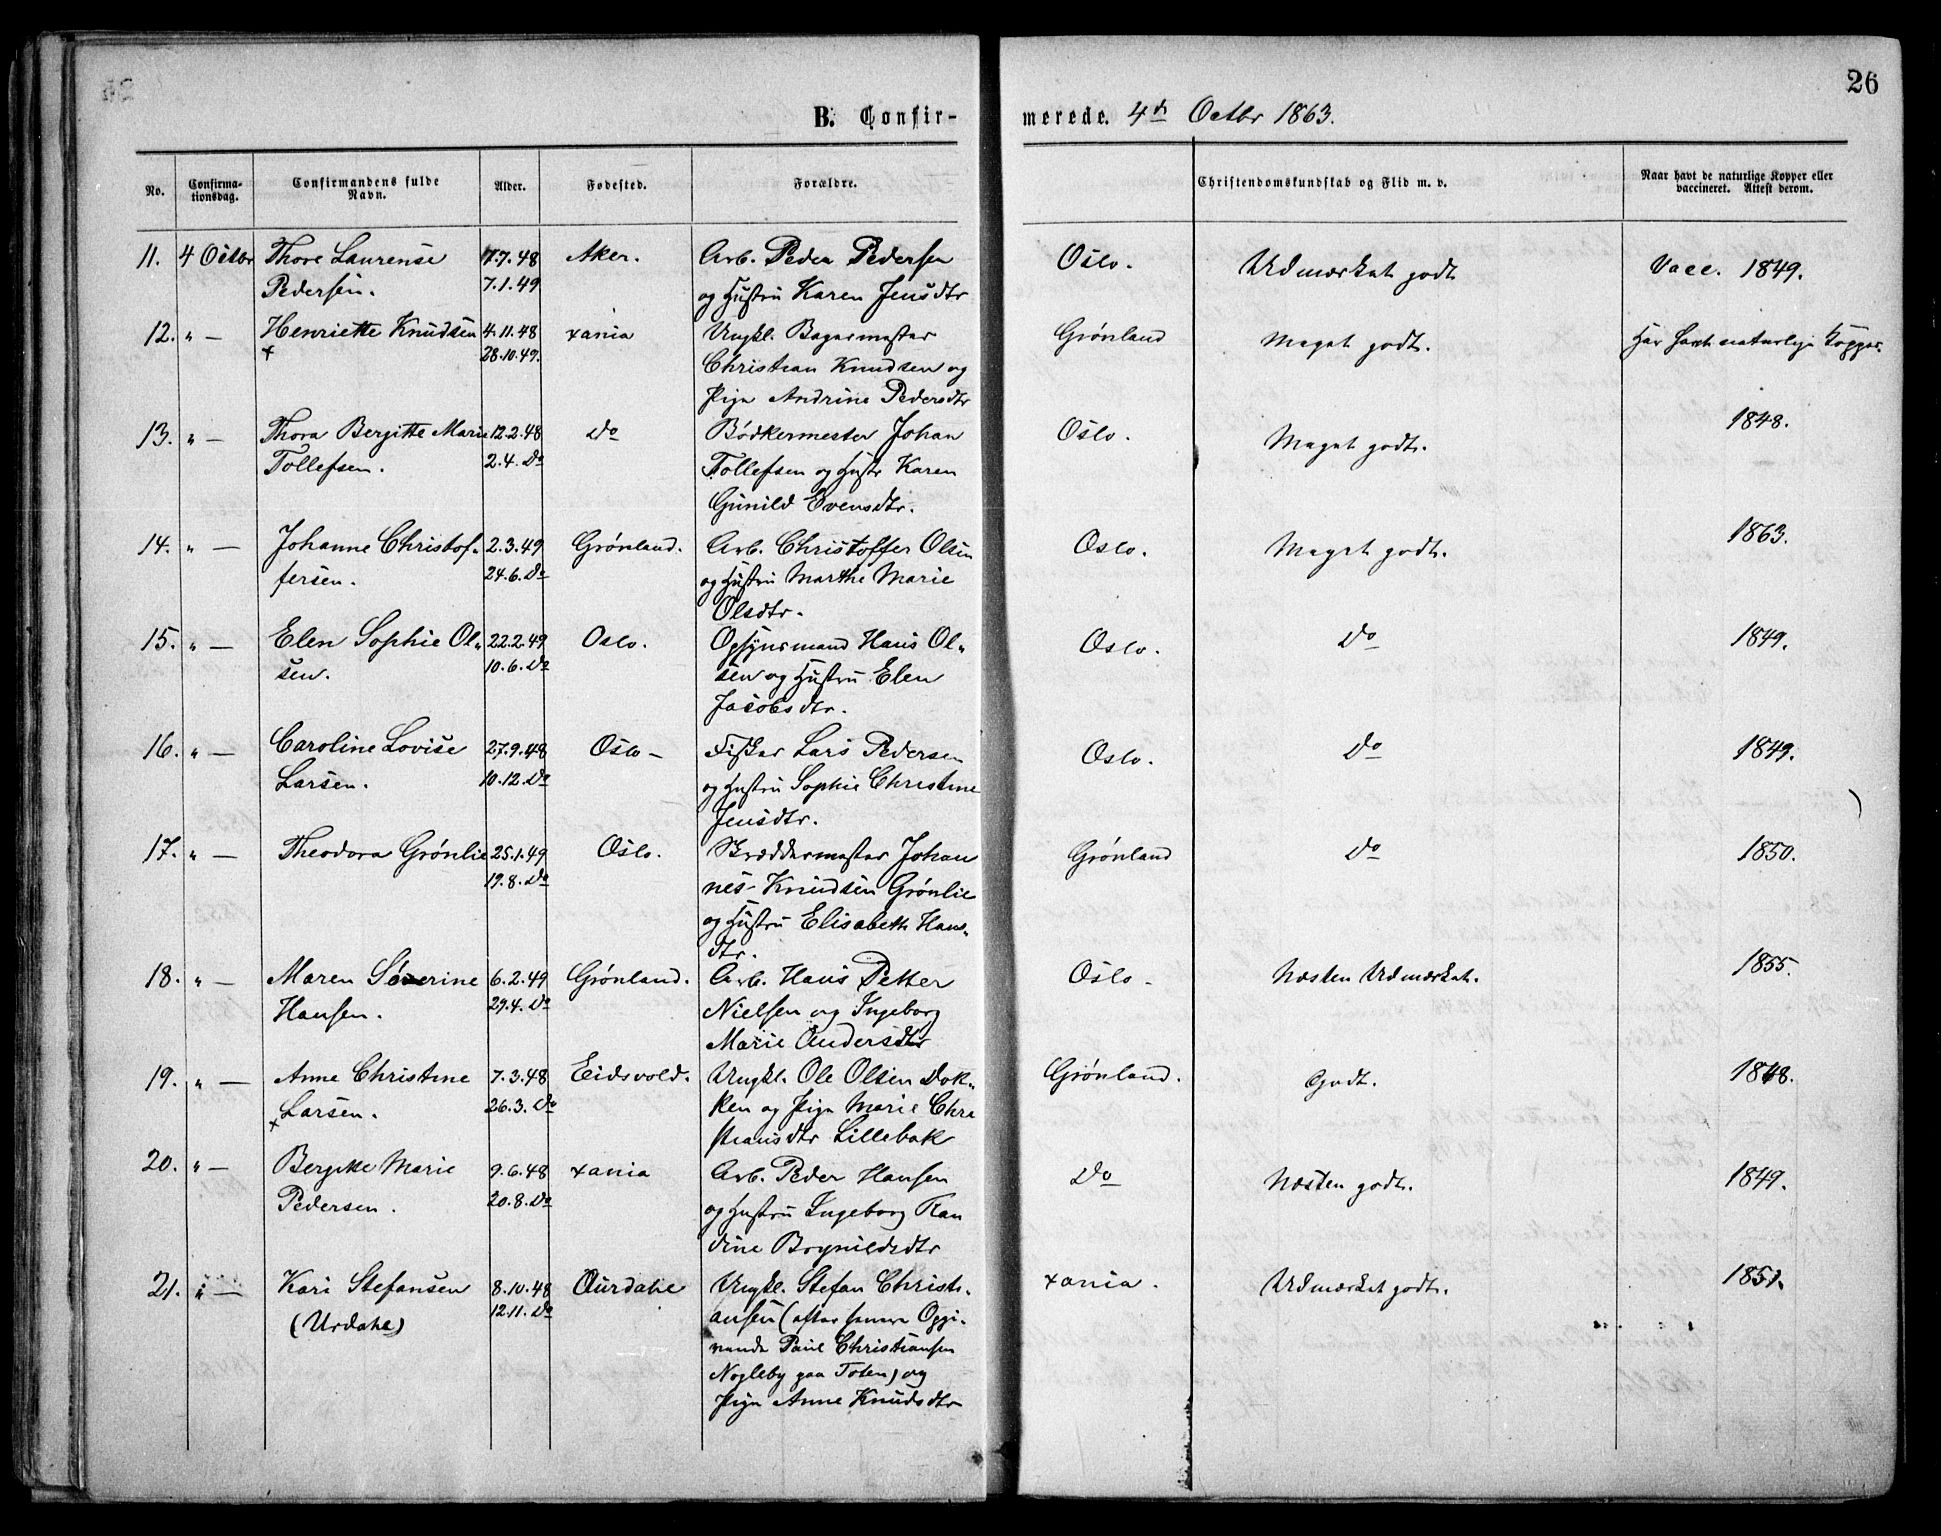 26
B. Confir-
merede. 4de Octbr 1863.
No.
Confirma-
tionsdag.
Confirmandens fulde
Navn.
Alder.
Fødested.
Forældre.
Christendomskundskab og Flid m. v.
Naar havt de naturlige Kopper eller
vaccineret. Attest derom.
11. 4 Octbr Thore Laurense 17.7.48 Aker. Arb. Peder Pedersen Oslo. Udmærket godt Vacc. 1849.
Pedersen. 7.1.49 og Hustru Karen Jensdtr
12. " — Henriette Knudsen 4.11.48 xania Ungkl. Bagermester Grønland Meget godt. Har havt naturlige Kopper.
x 28.10.49. Christian Knudsen og
Pige Andrine Pedersdtr
13. " — Thora Bergitte Marie 12.2.48 Do Bødkermester Johan Oslo. Meget godt. 1848.
Tollefsen. 2.4. Do Tollefsen og Hustr Karen
Gunild Evensdtr.
14. " — Johanne Christof- 2.3.49 Grønland. Arb. Christoffer Olsen Oslo. Meget godt. 1863.
fersen. 24.6. Do og Hustru Marthe Marie
Olsdtr.
15. " — Elen Sophie Ol- 22.2.49 Oslo. Opsynsmand Hans Ol- Oslo. Do 1849.
sen. 10.6. Do sen og Hustru Elen
Jacobsdtr.
16. " — Caroline Lovise 27.9.48 Oslo — Fisker Lars Pedersen Oslo. Do 1849.
Larsen. 10.12. Do og Hustru Sophie Christine
Jensdtr.
17. " — Theodora Grønlie 25.1.49 Oslo. Skræddermester Johan Grønland Do 1850.
19.8. Do nes Knudsen Grønlie
og Hustru Elisabeth Hans-
dtr.
18. " — Maren Severine 6.2.49 Grønland. Arb. Hans Petter Oslo — Næsten Udmærket. 1855.
Hansen. 29.4. Do Nielsen og Ingeborg
Marie Andersdtr
19. " — Anne Christine 7.3.48 Eidsvold. Ungkl. Ole Olsen Dok- Grønland. Godt. 1848.
x Larsen. 26.3. Do ken og Pige Marie Chri
stiansdtr Lillebak
20. " — Bergitte Marie 9.6.48 xania Arb. Peder Hansen Do Næsten godt. 1849.
Pedersen. 20.8. Do og Hustru Ingeborg Ran
dine Boynildsdtr
21. " — Kari Stefansen 8.10.48 Ourdahl Ungkl. Stefan Christi- xania. Udmærket godt. 1851.
(Urdahl) 12.11. Do ansen (efter senere Opgi-
vende Paul Christiansen
Nogleby paa Toten) og
Pige Anne Knudsdtr